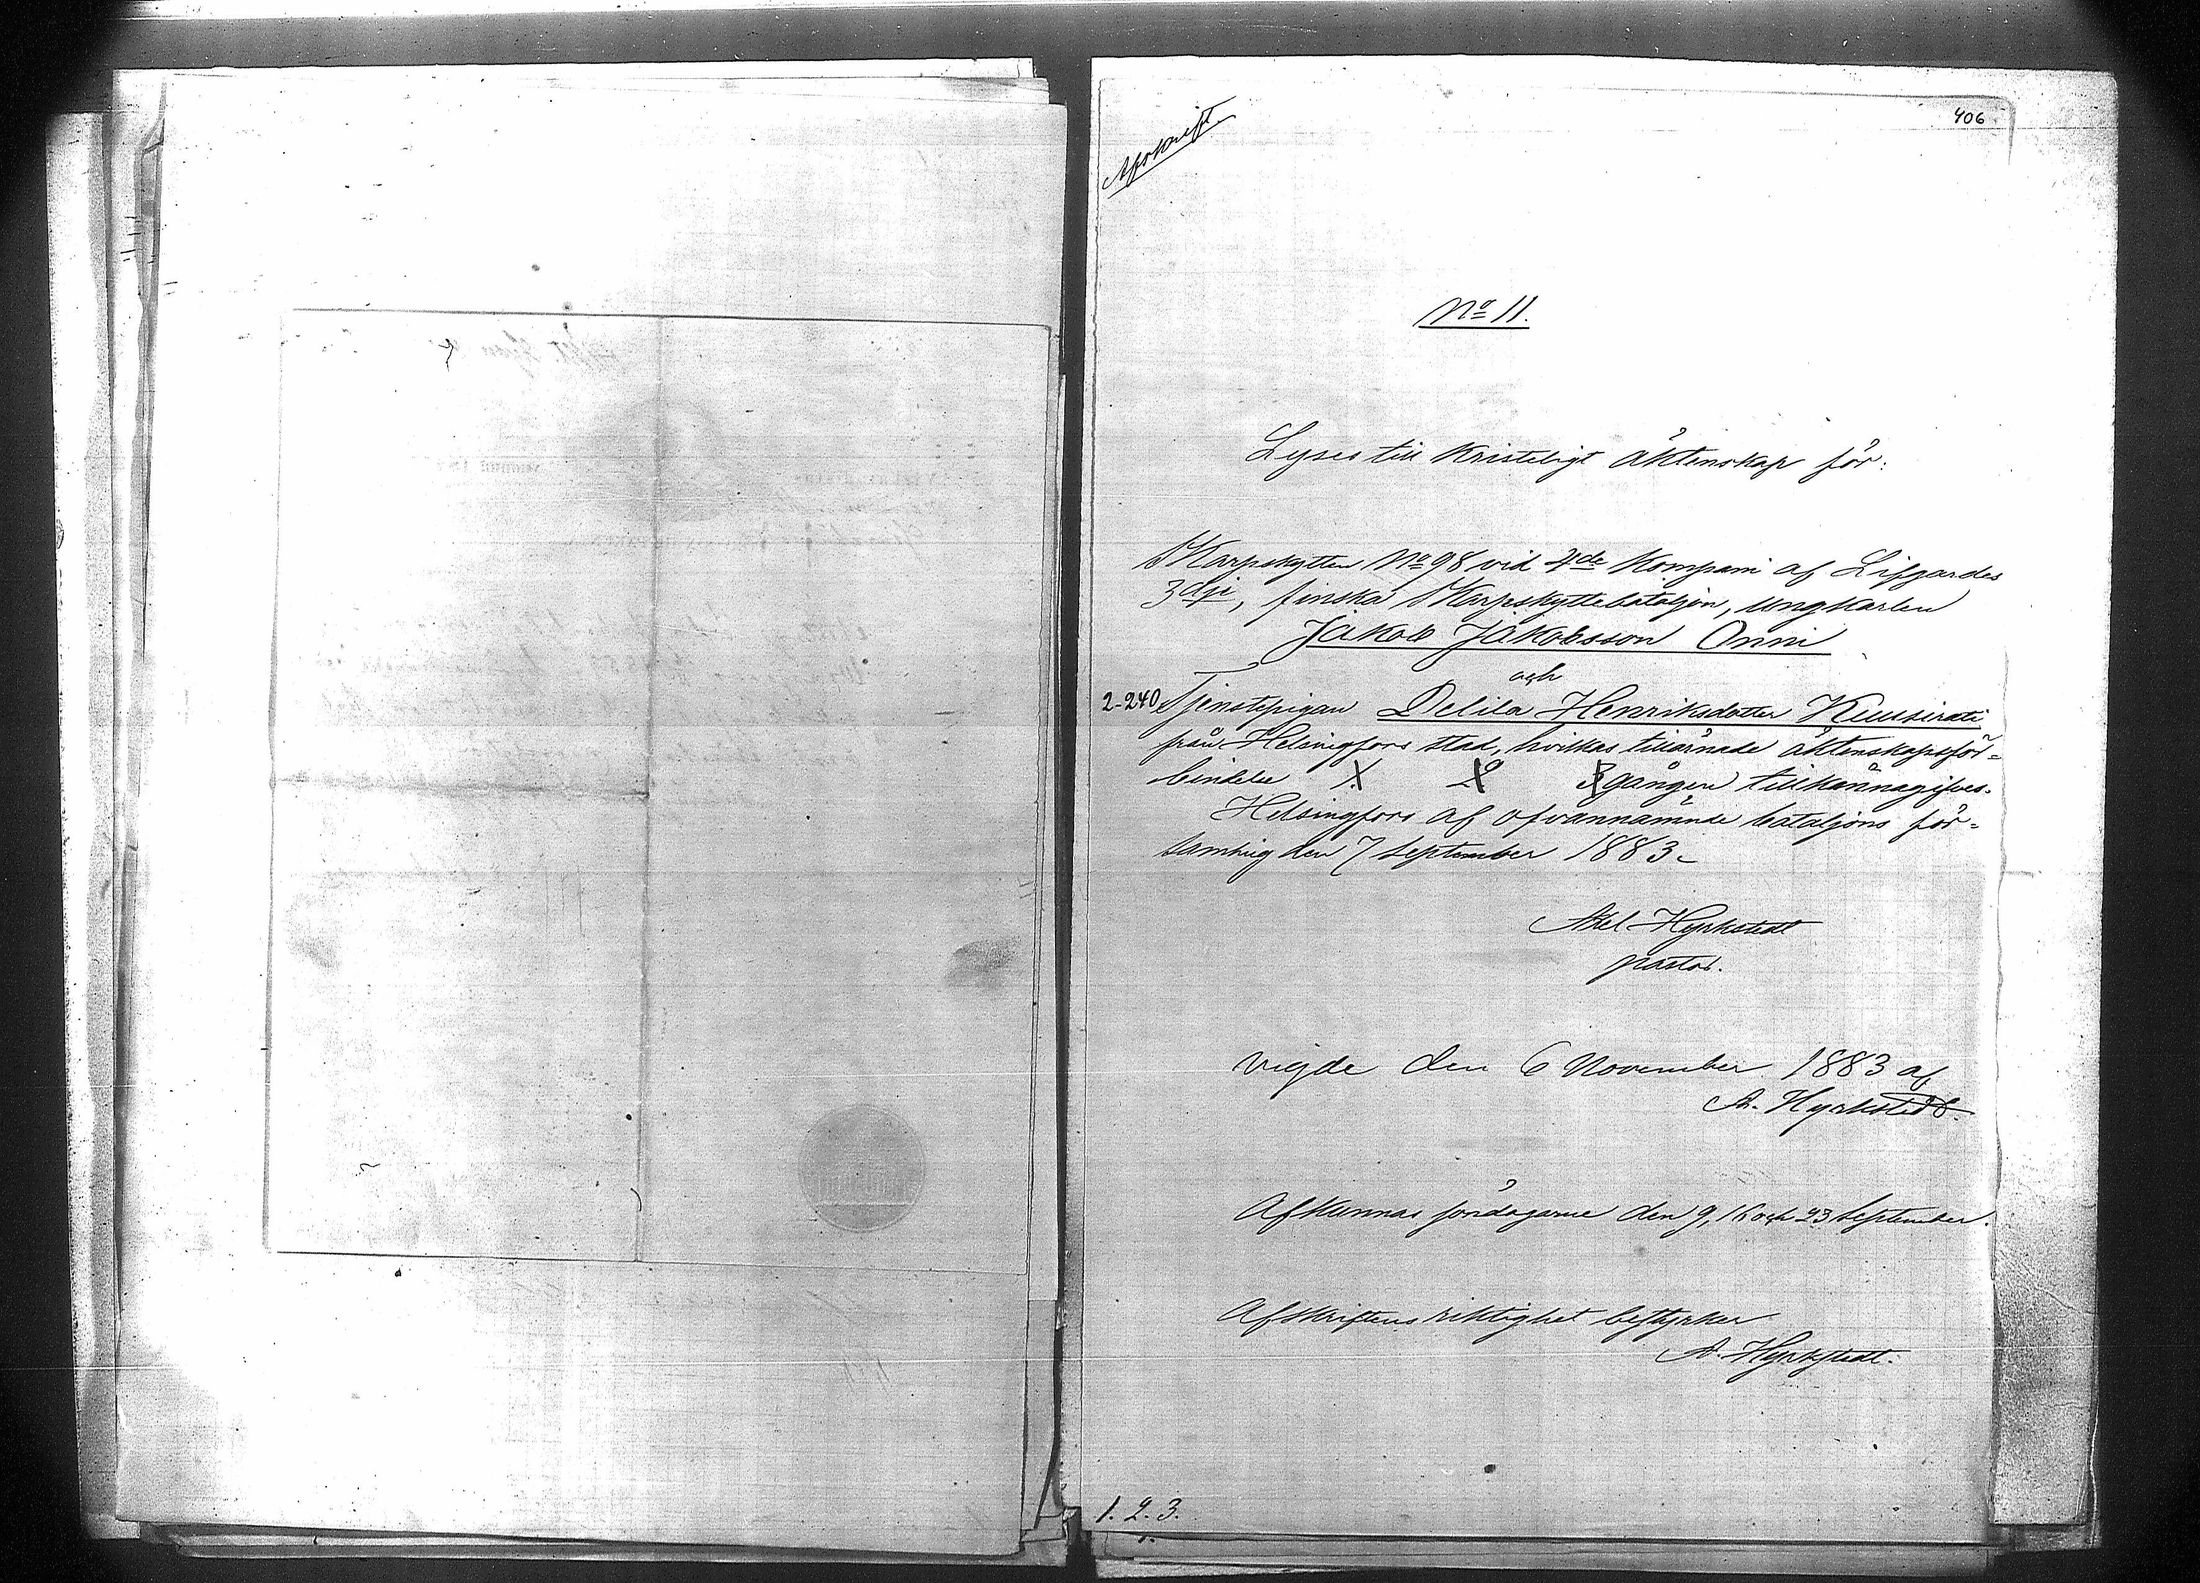 406
Afskrift
No 11.
Lyses till Kristeligt äktenskap för:
Skarpskytten No 98 vid 4de Kompani af Lifgardes
3dje, finska Skarpskyttebataljon, ungkarlen
Jakob Jakobsson Onni
och
2-240 Tjenstepigan Delila Henriksdotter Kuusirati
från Helsingfors stad, hvilkas tillärnade äktenskapsför=
bindelse 1. 2 3 gången tillkännagifves.
Helsingfors af ofvannämnde bataljons för=
samling den 7 September 1883.
Axel Hyrkstedt
pastor.
Vigde den 6 November 1883 af
A. Hyrkstedt.
Afkunnas söndagarne den 9, 16 och 23 September.
Afskriftens riktighet bestyrker
A. Hyrkstedt.
1. 2. 3.